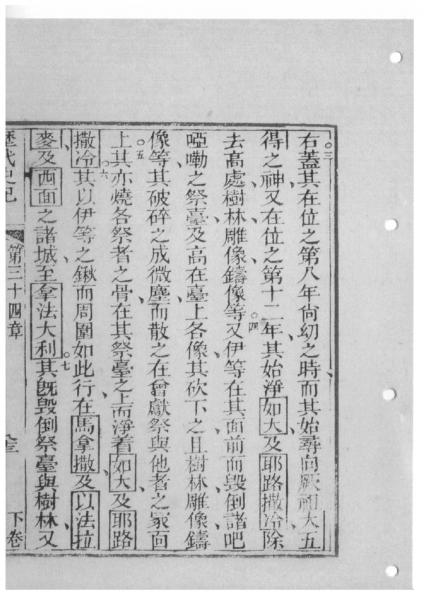 三右蓋其在位之第八年尚幼之時而其始尋向厥祖大五
得之神又在位之第十二年其始淨如大及耶路撒冷除
去高處樹林雕像鑄像等四又伊等在其面前而毀倒諸吧
啞嘞之祭臺及高在臺上各像其砍下之且樹林雕像鑄
像等其破碎之成微塵而散之在曾獻祭與他者之冢面
上五其亦燒各祭者之骨在其祭臺之上而淨着如大及耶路
撒冷六其以伊等之鍬而周圍如此行在馬拿撒及以法拉
麥及西面之諸城至拿法大利七其既毀倒祭臺與樹林又
歷代史記
第三十四章
下卷